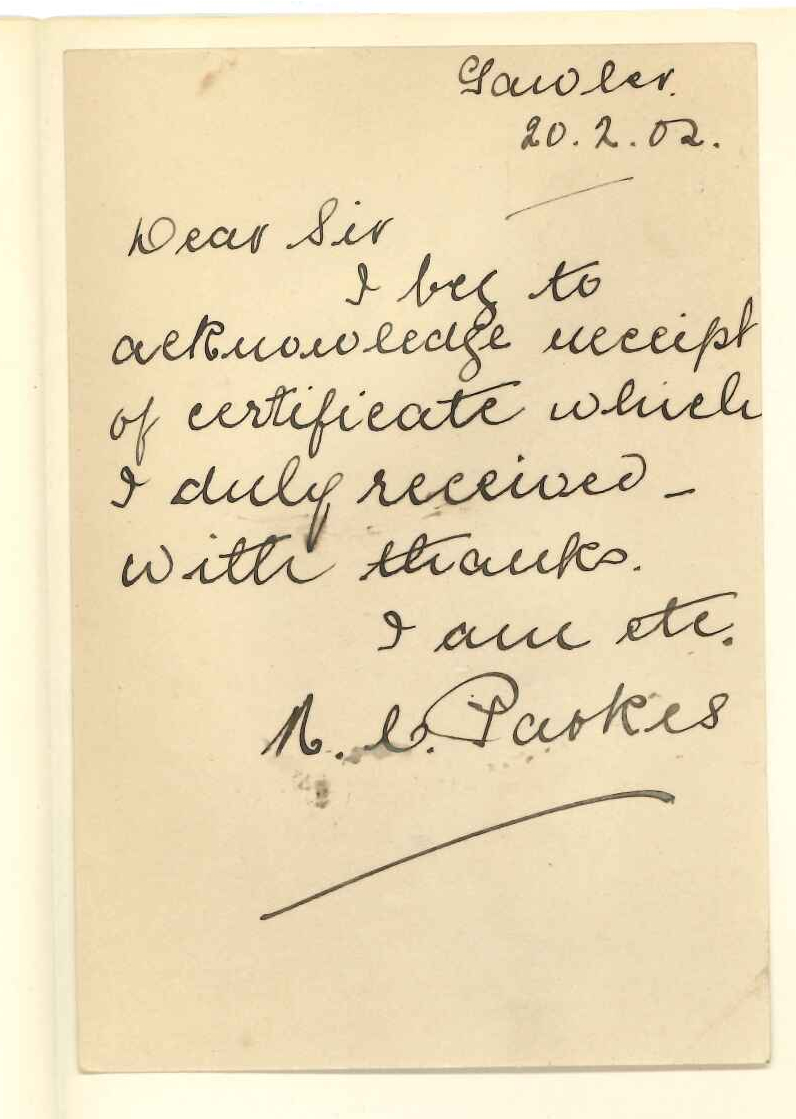 Gawler.
20.2.02.
Dear Sir
I beg to
acknowledge receipt
of certificate which
I duly received –
with thanks.
I am etc.
N. C. Parkes